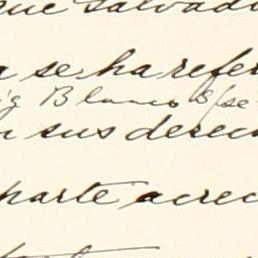 que Salvado
a se ha refer
ig Blanco s/se
n sus derec
parte acree